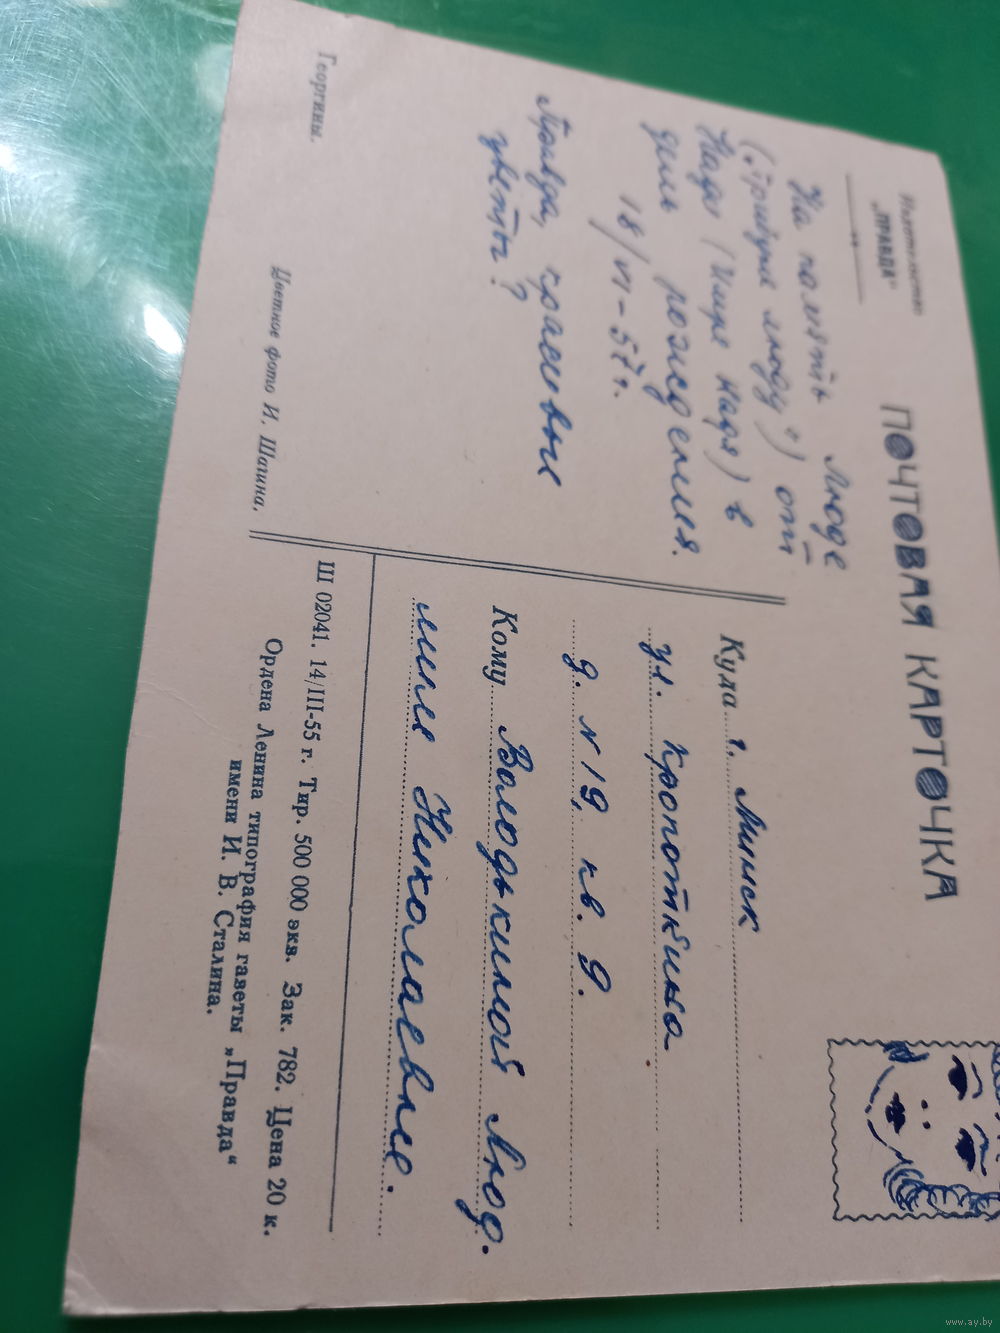 Издательство
„ПРАВДА“
ПОЧТОВАЯ КАРТОЧКА
На память Люде
Наде (Имре Надя) в
день рождения.
18/VI-57г.
Правда, красивые
цветы?
Куда г. Минск
ул. Кропоткина
д. N 19, кв. 9.
Кому Володькиной Люд.
миле Николаевне.
Георгины.
Цветное фото И. Шагина.
Ш 02041. 14/III-55 г. Тир. 500 000 экв. Зак. 782. Цена 20 к.
Ордена Ленина типография газеты „Правда“
имени И. В. Сталина.
www.ay.by